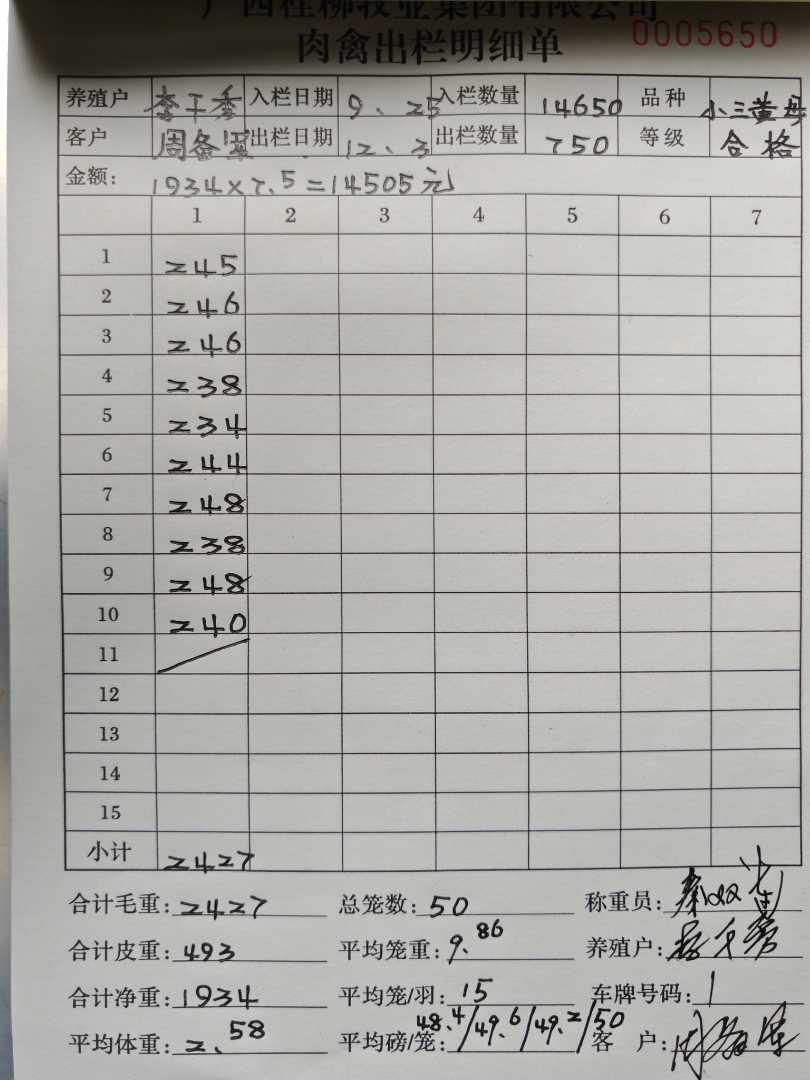 广西桂柳牧业集团有限公司
肉禽出栏明细单 0005650
养殖户 李干秀 入栏日期 9、25 入栏数量 14650 品种 小三黄母
客户 出栏日期 12、3 出栏数量 750 等级 合格
金额: 1934×7.5=14505元
1 2 3 4 5 6 7
1 245
2 246
3 246
4 238
5 234
6 244
7 248
8 238
9 248
10 240
11
12
13
14
15
小计 2427
合计毛重: 2427 总笼数: 50 称重员:
合计皮重: 493 平均笼重: 9.86 养殖户:
合计净重: 1934 平均笼/羽: 15 车牌号码:
平均体重: 2.58 平均磅/笼: 48.4/49.6/49.2/50 客户: